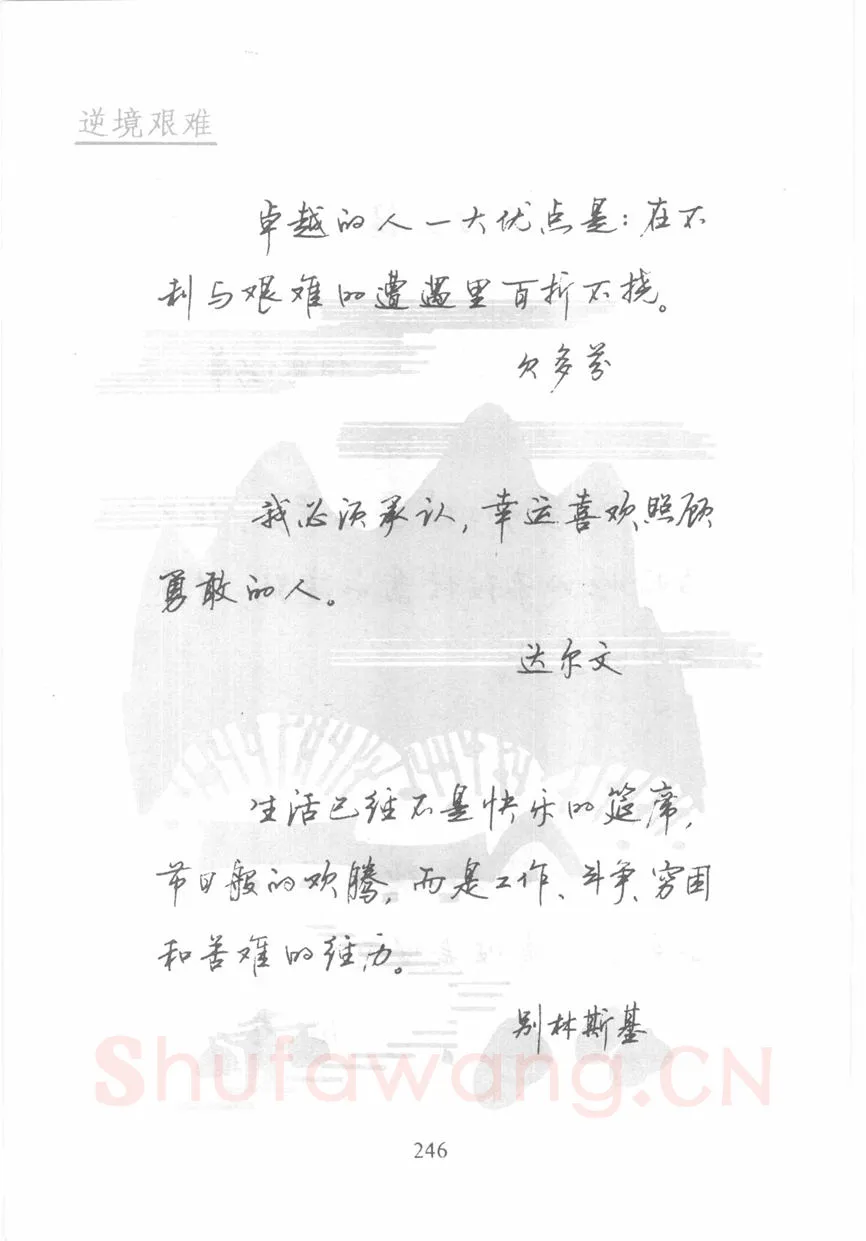 逆境艰难
卓越的人一大优点是：在不
利与艰难的遭遇里百折不挠。
贝多芬
我必须承认，幸运喜欢照顾
勇敢的人。
达尔文
生活已经不是快乐的筵席，
节日般的欢腾，而是工作、斗争、穷困
和苦难的经历。
别林斯基
Shufawang.CN
246